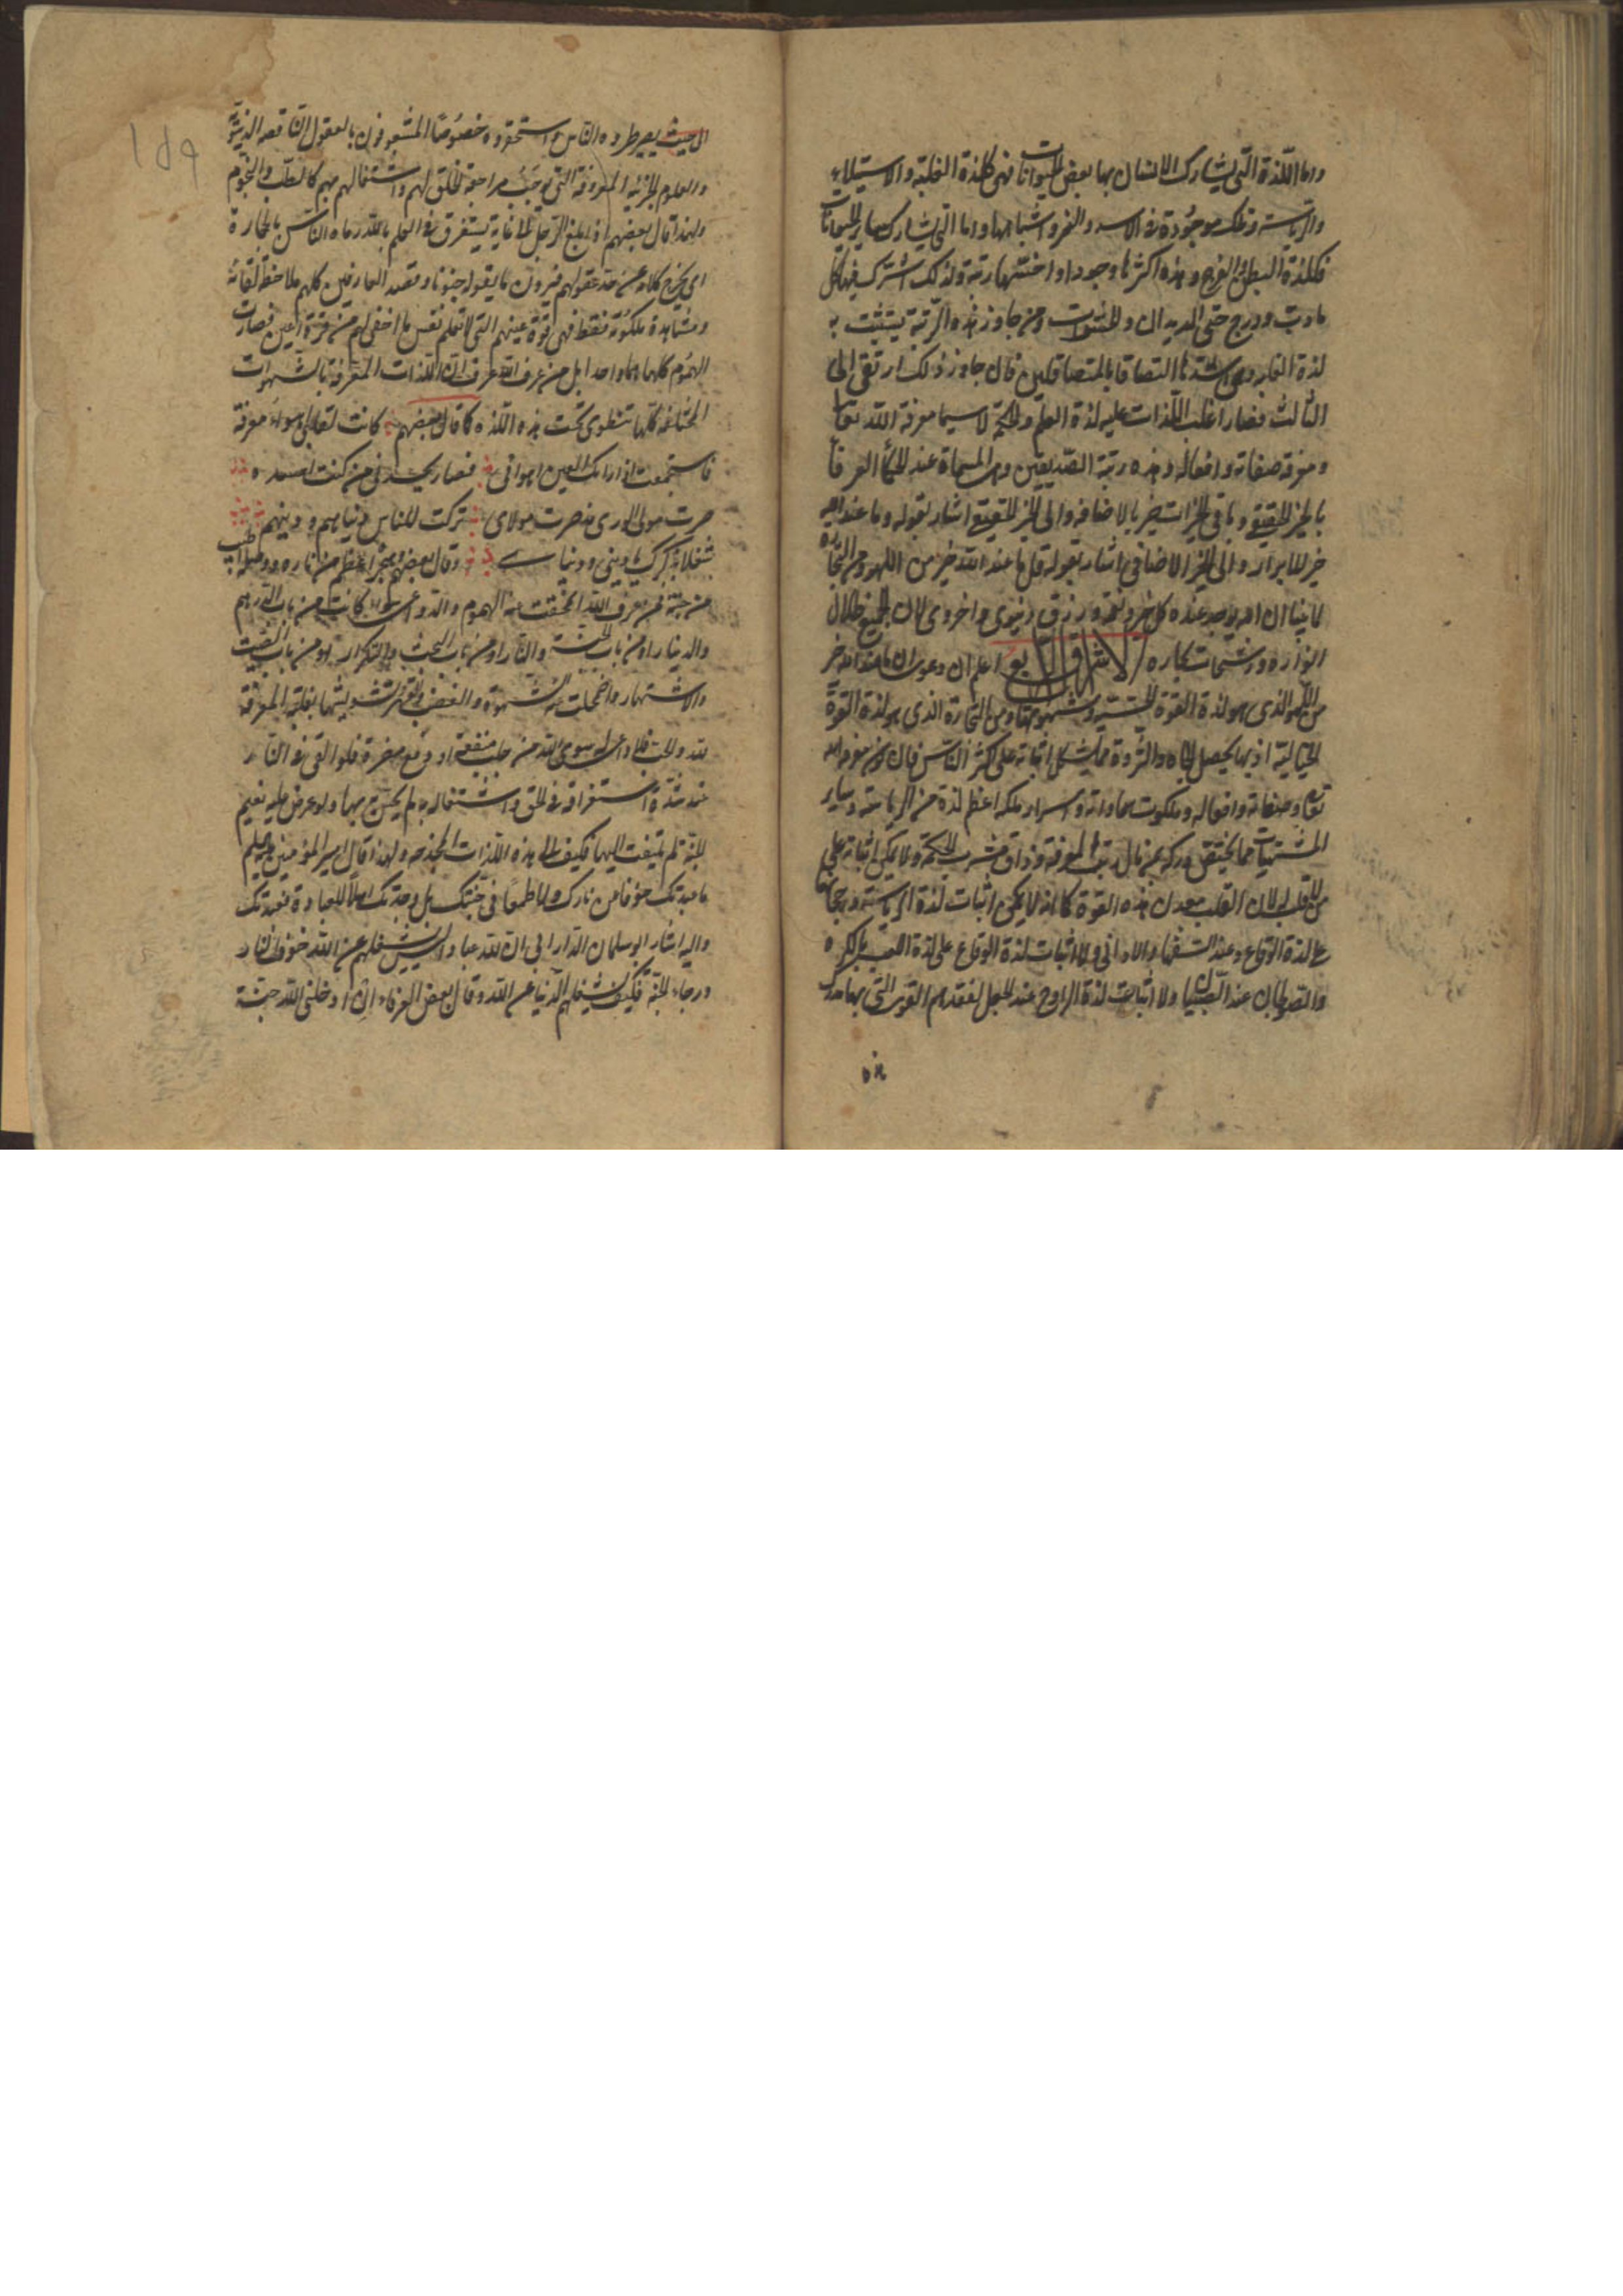 واما اللّذة التّى يشارك الانسان بها بعض الحيوانات فهى كلذة الغلبة والاستيلاء
والرّياسة وذلك موجُودة فى الاسد والنمر واشباهها واما التى يشارك بها سائر الحيوانات
فكلذة البطن والفرج وهذه اكثرها وجودا واخسّها رتبة ولذلك اشترك فيها كل
مادبّ ودرج حتى الديدان والحشرات ومن جاوز هذه الرّتبة يتشبث به
لذة الغلبة وهى اشدّها التصاقا بالمتصاقلين فان جاوز ذلك ارتقى الى
الثالث فصار اغلب اللّذات عليه لذة العلم والحكمة لاسيما معرفة الله تعالى
ومعرفة صفاته وافعاله وهذه رتبة الصّديقين وهى المسماة عند الحكماء العرفاء
بالخير الحقيقى وباقى الخيرات خير بالاضافة والى الخير الحقيقى اشار بقوله وما عند الله
خير للابرار والى الخير الاضافى اشار بقوله قل ما عند الله خير من اللهو ومن التجارة
لما بينا ان الله يوجد عنده كل خير ونعمة ورزق دنيوى واخروى لان الجميع ظلال
انواره ورشحات بحاره الاشراق الرابع اعلم ان دعوى ان ما عند الله خير
من اللّهو الذى هو لذة القوة الحسّيّة وشهوتها ومن التجارة الذى هو لذة القوة
الخيالية اذ بها يحصل الجاه والثروة مما يشكل اثباته على اكثر النّاس فان كون معرفة الله
تعالى وصفاته وافعاله وملكوت سماواته واسرار ملكه اعظم لذة من الرياسة وسایر
المشتهيات مما يختص دركه بمن نال رتبة المعرفة وذاق مشرب الحكمة ولا يمكن اثباته على
من لا قلب له لان القلب معدن هذه القوة كما انه لا يمكن اثبات لذة الرياسة ورجحانها
على لذة الوقاع عند السّفهاء والادانى ولا اثبات لذة الوقاع على لذة اللعب بالكره
والصولجان عند الصّبيان ولا اثبات لذة الروايح عند الجعل لفقدهم القوى التى بها يدرك
الى حيث يصير طرده النّاس واستحقروه خصُوصًا المشعوفون بالعقول النّاقصه الدنيويّة
والعلوم الجزئية المعروفة التى يوجب مراجعة الخلق لهم واشتغالهم بهم كالطب والنجوم
ولهذا قال بعضهم اذا بلغ الرّجل الى غاية يستغرق فى العلم بالله رماه النّاس بالحجارة
اى يخرج كلامه عن حد عقولهم فيرون ما يقوله جنونا وقصد العارفين كلهم ملاحظة لقائه
ومشاهدة ملكوته فقط فهى قوة عينهم التى لا تعلم نفس ما اخفى لهم من قرّة اعين فصارت
الهمُوم كلها هما واحدا بل من عرف الله عرف ان اللّذات المعرفة بالشهوات
المختلفة كلّها تنطوى تحت هذه اللّذه كما قال بعضهم كانت لقلبى اهواء مفرقة
فاستجمعت اذ راتك العين اهوائى فصار يحسدنى من كنت احسده
صرت مولى الورى مذ صرت مولاى تركت للناس دنياهم ودينهم
شغلا بذكرك يا دينى ودنياى وقال بعضهم وهجره اعظم من ناره ووصله اطيب
من جنّة فمن عرف الله انمحقت عنه الهموم والدواعى سواء كانت من باب الدّرهم
والدينار او من باب الجنّة والنّار او من باب البحث والتكرار او من باب الصّيت
والاشتهار واضمحلت عنه الشهوة والغضب والقهر لتشويشها بغلبة المعرفة
لله والحب فلا داعى له سوى الله من جلب منفعة او دفع مضرة فلو القى فى النّار
عند شدة استغراقه فى الحق واشتغاله به لم يحسّ بها ولو عرض عليه نعيم
الجنّة لم يلتفت اليها فكيف الى هذه اللّذات المخدجه ولهذا قال امير المؤمنين عليه السلم
ما عبدتك خوفا من نارك ولا طمعًا فى جنّتك بل وجدتك اهلا للعبادة فعبدتك
واليه اشار ابو سلمان الدّارانى ان لله عبادا ليس يشغلهم عن الله خوف النّار
ورجاء الجنّة فكيف يشغلهم الدّنيا عن الله وقال بعض العرفاء